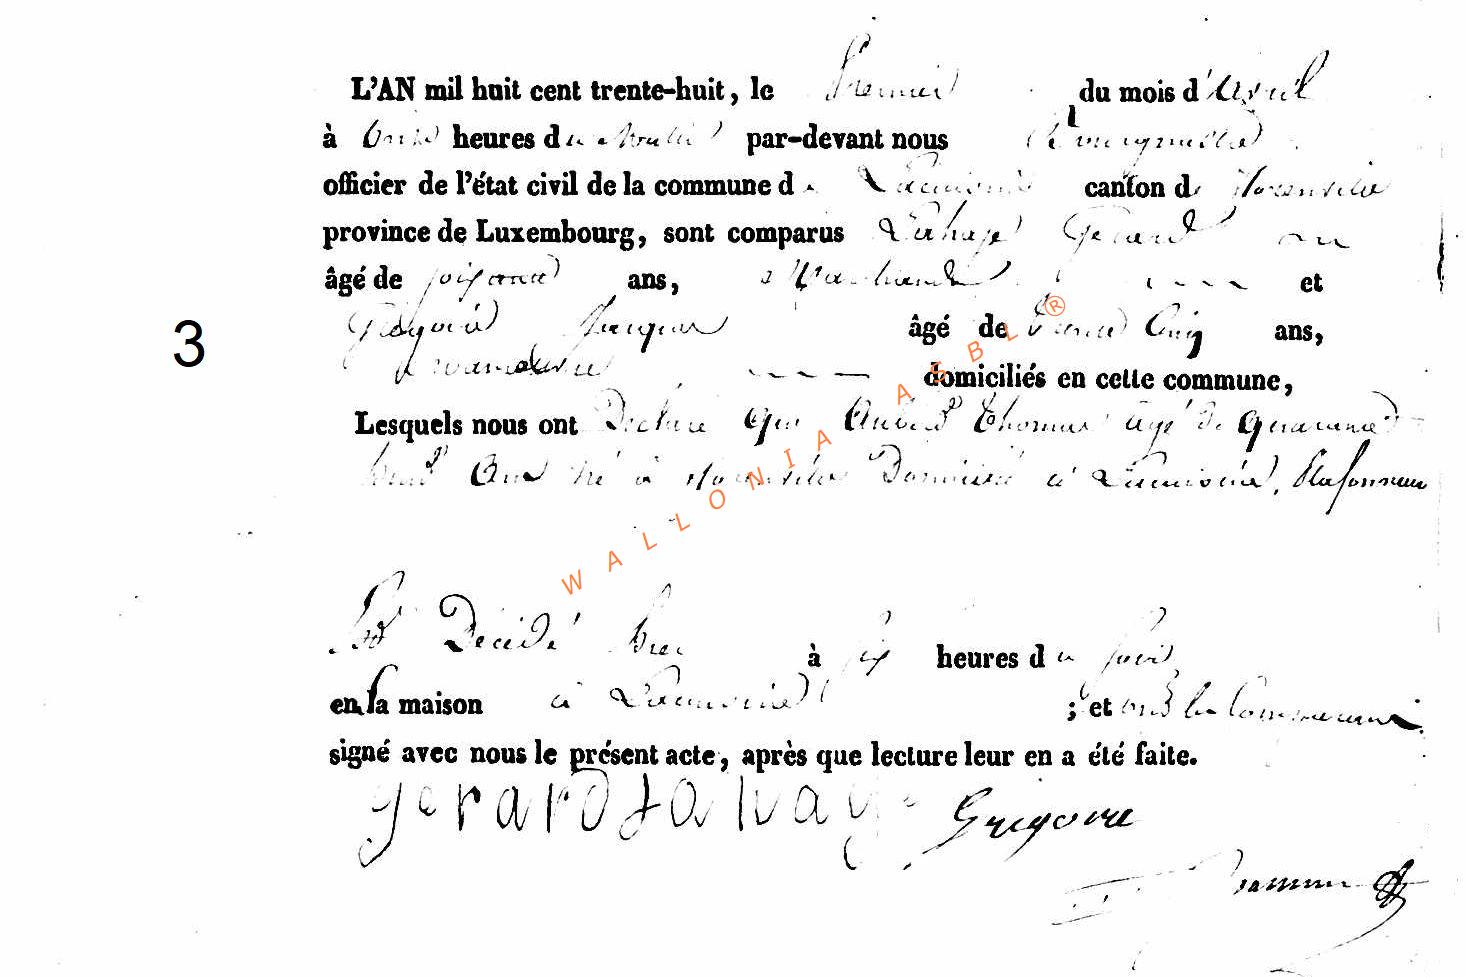 L'AN mil huit cent trente-huit, le Premier du mois d'Avril
à heures du par-devant nous
officier de l'état civil de la commune d canton de florenville
province de Luxembourg, sont comparus Lahaye Gérard
âgé de soixante ans, Marchand et
3
Grégoire Jacques âgé de Trente Cinq ans,
domiciliés en cette commune,
Lesquels nous ont Déclaré que Thomas âgé de quarante
huit ans né à florenville Domicilié à Lacuisine, Plafonneur
Est Décédé hier à six heures du soir
en sa maison à Lacuisine ; et ont les Comparants
signé avec nous le présent acte, après que lecture leur en a été faite.
gerard Lahaye Grégoire
WALLONIA ASBL ®